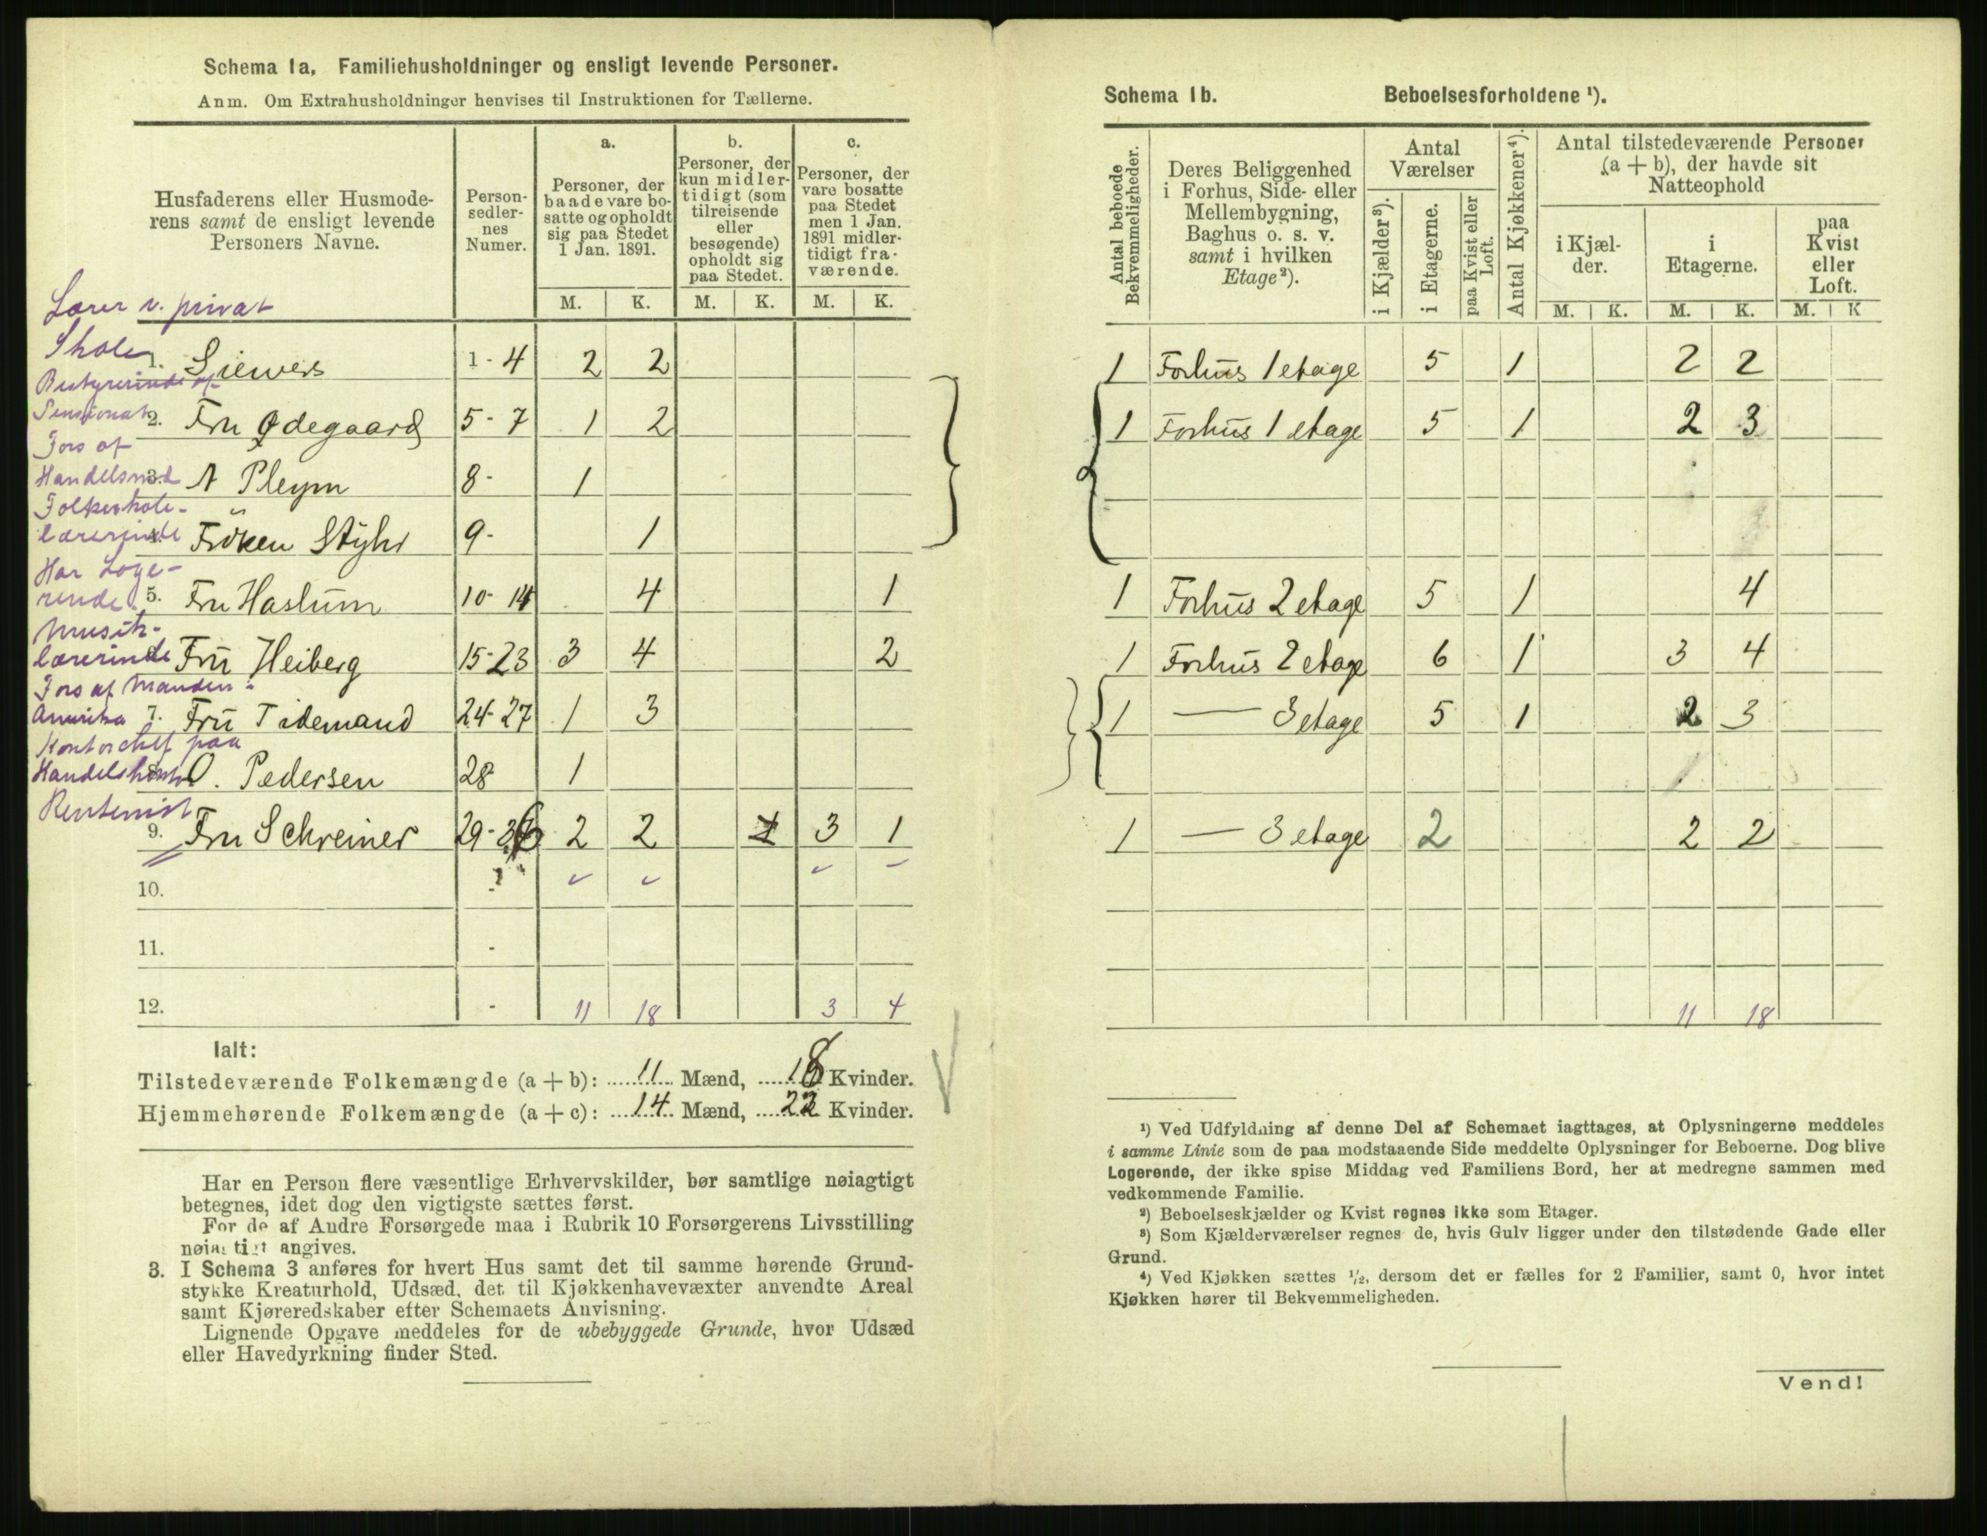 Schema 1a, Familiehusholdninger og ensligt levende Personer.
Anm. Om Extrahusholdninger henvises til Instruktionen for Tællerne.
Husfaderens eller Husmode-
rens samt de ensligt levende
Personers Navne.
Person-
sedler-
nes
Numer.
a.
Personer, der
baade vare bo-
satte og opholdt
sig paa Stedet
1 Jan. 1891.
b.
Personer, der
kun midler-
tidigt (som
tilreisende
eller
besøgende)
opholdt sig
paa Stedet.
c.
Personer, der
vare bosatte
paa Stedet
men 1 Jan.
1891 midler-
tidigt fra-
værende.
M. K. M. K. M. K.
Lærer v. privat
Skole
1. Siewers 1-4 2 2
Bestyrerinde af
Pensionat
2. Fru Ødegaard 5-7 1 2
Fors af
Handelsmd
3. A Pleym 8- 1
Folkeskole-
lærerinde
4. Frøken Styhr 9- 1
Har Loge-
rende
5. Fru Haslum 10-14 4 1
Musik-
lærerinde
Fru Heiberg 15-23 3 4 2
Fors af Manden i
Amerika
7. Fru Tidemand 24-27 1 3
Kontorchef paa
Handelskont
8. O. Pedersen 28 1
Rentenist
9. Fru Schreiner 29-36 2 2 1 3 1
10.
11. -
12. - 11 18 3 4
Ialt:
Tilstedeværende Folkemængde (a + b): 11 Mænd, 18 Kvinder.
Hjemmehørende Folkemængde (a + c): 14 Mænd, 22 Kvinder.
Har en Person flere væsentlige Erhvervskilder, bør samtlige nøiagtigt
betegnes, idet dog den vigtigste sættes først.
For de af Andre Forsørgede maa i Rubrik 10 Forsørgerens Livsstilling
nøiagtigt angives.
3. I Schema 3 anføres for hvert Hus samt det til samme hørende Grund-
stykke Kreaturhold, Udsæd, det til Kjøkkenhavevæxter anvendte Areal
samt Kjøreredskaber efter Schemaets Anvisning.
Lignende Opgave meddeles for de ubebyggede Grunde, hvor Udsæd
eller Havedyrkning finder Sted.
Schema 1b. Beboelsesforholdene ¹).
Antal beboede
Bekvemmeligheder.
Deres Beliggenhed
i Forhus, Side- eller
Mellembygning,
Baghus o. s. v.
samt i hvilken
Etage²).
Antal
Værelser
i Kjælder³).
i Etagerne.
paa Kvist eller
Loft.
Antal Kjøkkener⁴).
Antal tilstedeværende Personer
(a + b), der havde sit
Natteophold
i Kjæl-
der.
i
Etagerne.
paa
Kvist
eller
Loft.
M. K. M. K. M. K
1 Forhus 1 etage 5 1 2 2
1 Forhus 1 etage 5 1 2 3
1 Forhus 2 etage 5 1 4
1 Forhus 2 etage 6 1 3 4
1 — 3 etage 5 1 2 3
1 — 3 etage 2 2 2
11 18
¹) Ved Udfyldning af denne Del af Schemaet iagttages, at Oplysningerne meddeles
i samme Linie som de paa modstaaende Side meddelte Oplysninger for Beboerne. Dog blive
Logerende, der ikke spise Middag ved Familiens Bord, her at medregne sammen med
vedkommende Familie.
²) Beboelseskjælder og Kvist regnes ikke som Etager.
³) Som Kjælderværelser regnes de, hvis Gulv ligger under den tilstødende Gade eller
Grund.
⁴) Ved Kjøkken sættes ½, dersom det er fælles for 2 Familier, samt 0, hvor intet
Kjøkken hører til Bekvemmeligheden.
Vend!